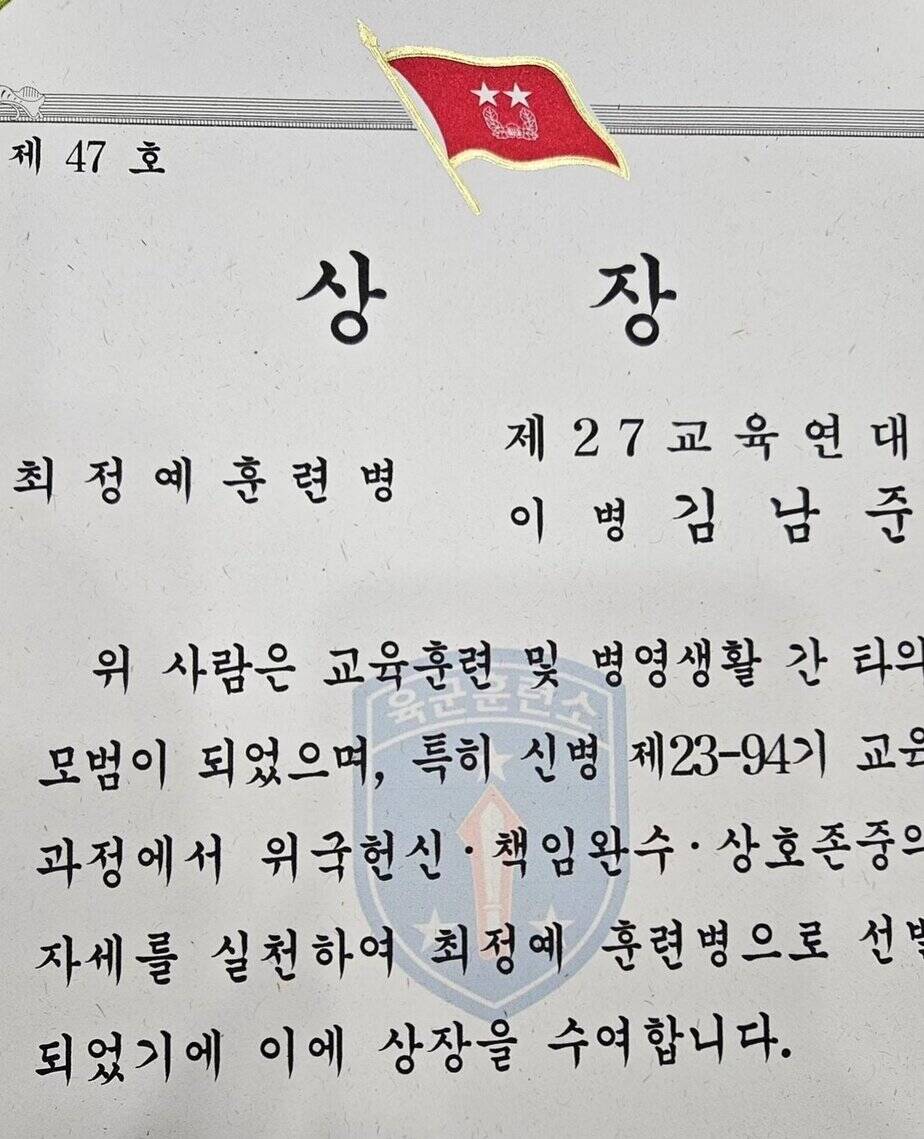 제 47 호
상 장
제27교육연대
최정예훈련병
이 병 김 남 준
위 사람은 교육훈련 및 병영생활 간 타의
육군훈련소
모범이 되었으며, 특히 신병 제23-94기 교육
과정에서 위국헌신·책임완수·상호존중의
자세를 실천하여 최정예 훈련병으로 선발
되었기에 이에 상장을 수여합니다.